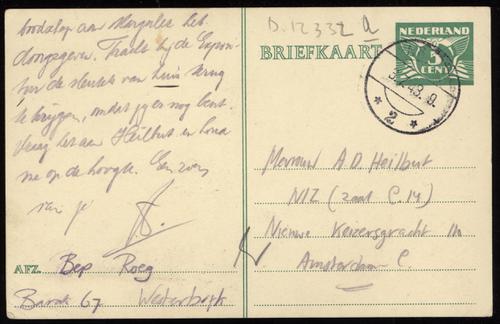 boodschap aan Margalies heb
doorgegeven. Tracht bij de
de sleutels van huis terug
te krijgen, omdat jij er nog bent.
Vraag het aan Heilbut en houd
me op de hoogte. Een zoen
van je
B.
AFZ. Bep Roeg
Barak 67 Westerbork
D.12332 a
BRIEFKAART
NEDERLAND
5
CENT
43. 19.
* 2 *
Mevrouw A.D. Heilbut
NIZ (zaal C.14)
Nieuwe Keizersgracht 110
Amsterdam C.